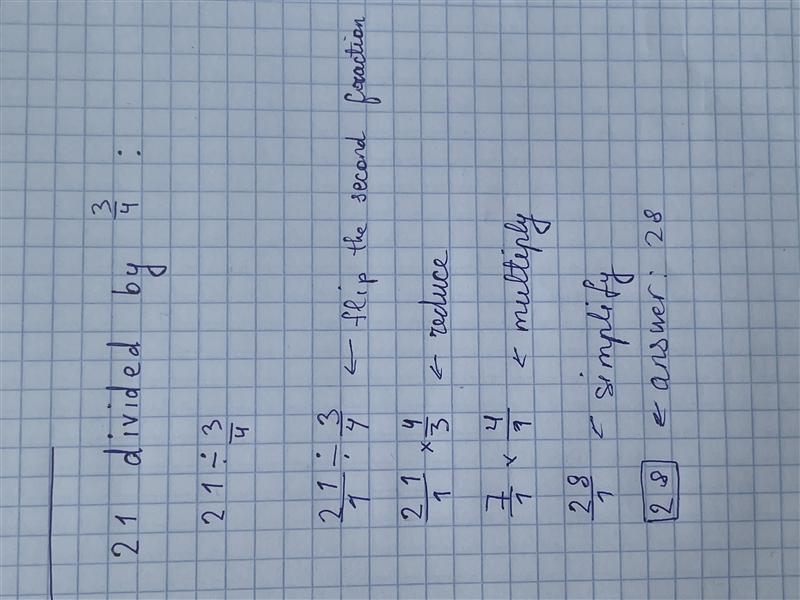 21 divided by 3/4 :
21 ÷ 3/4
21/1 ÷ 3/4 ← flip the second fraction
21/1 × 4/3 ← reduce
7/1 × 4/1 ← multiply
28/1 ← simplify
28 ← answer: 28